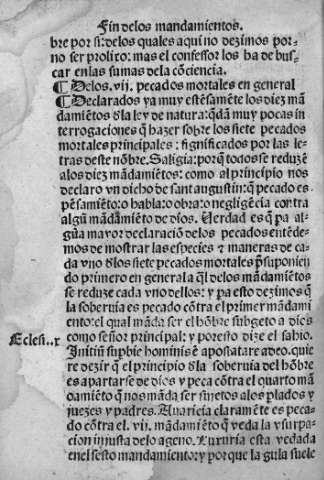 Fin delos mandamientos.
bre por si: delos quales aqui no dezimos por
no ser prolixo: mas el confessor los ha de bus-
car en las sumas dela cõciencia.
¶ Delos .vij. pecados mortales en general
¶ Declarados ya muy estẽsamẽte los diez mã
damiẽtos d̃la ley de natura: q̃dã muy pocas in
terrogaciones q̃ hazer sobre los siete pecados
mortales principales: significados por las le-
tras deste nõbre. Saligia: porq̃ todos se reduzẽ
alos diez mãdamiẽtos: como al principio nos
declaro vn dicho de sant augustin: q̃ pecado es
pẽsamiẽto: o habla: o obra: o negligẽcia contra
algũ mãdamiẽto de dios. Uerdad es q̃ pa al-
gũa mayor declaraciõ delos pecados entẽde-
mos de mostrar las especies & maneras de ca-
da vno d̃los siete pecados mortales p̃suponiẽ
do primero en general a q̃l delos mandamiẽtos
se reduze cada vno dellos: y pa esto dezimos q̃
la soberuia es pecado cõtra el primer mãdami
ento: el qual mãda ser el hõbre subgeto a dios
Eclesi..x como señor principal: y por esto dize el sabio.
Initiũ supbie hominis ẽ apostatare a deo. quie
re dezir q̃ el principio d̃la soberuia del hõbre
es apartarse de dios y peca cõtra el quarto mã
damiẽto q̃ nos mãda ser sujetos alos plados y
juezes y padres. Auaricia claramẽte es peca-
do cõtra el .vij. mãdamiẽto q̃ veda la vsurpa-
cion injusta delo ageno. Luxuria esta vedada
en el sesto mandamiento: y por que la gula suele